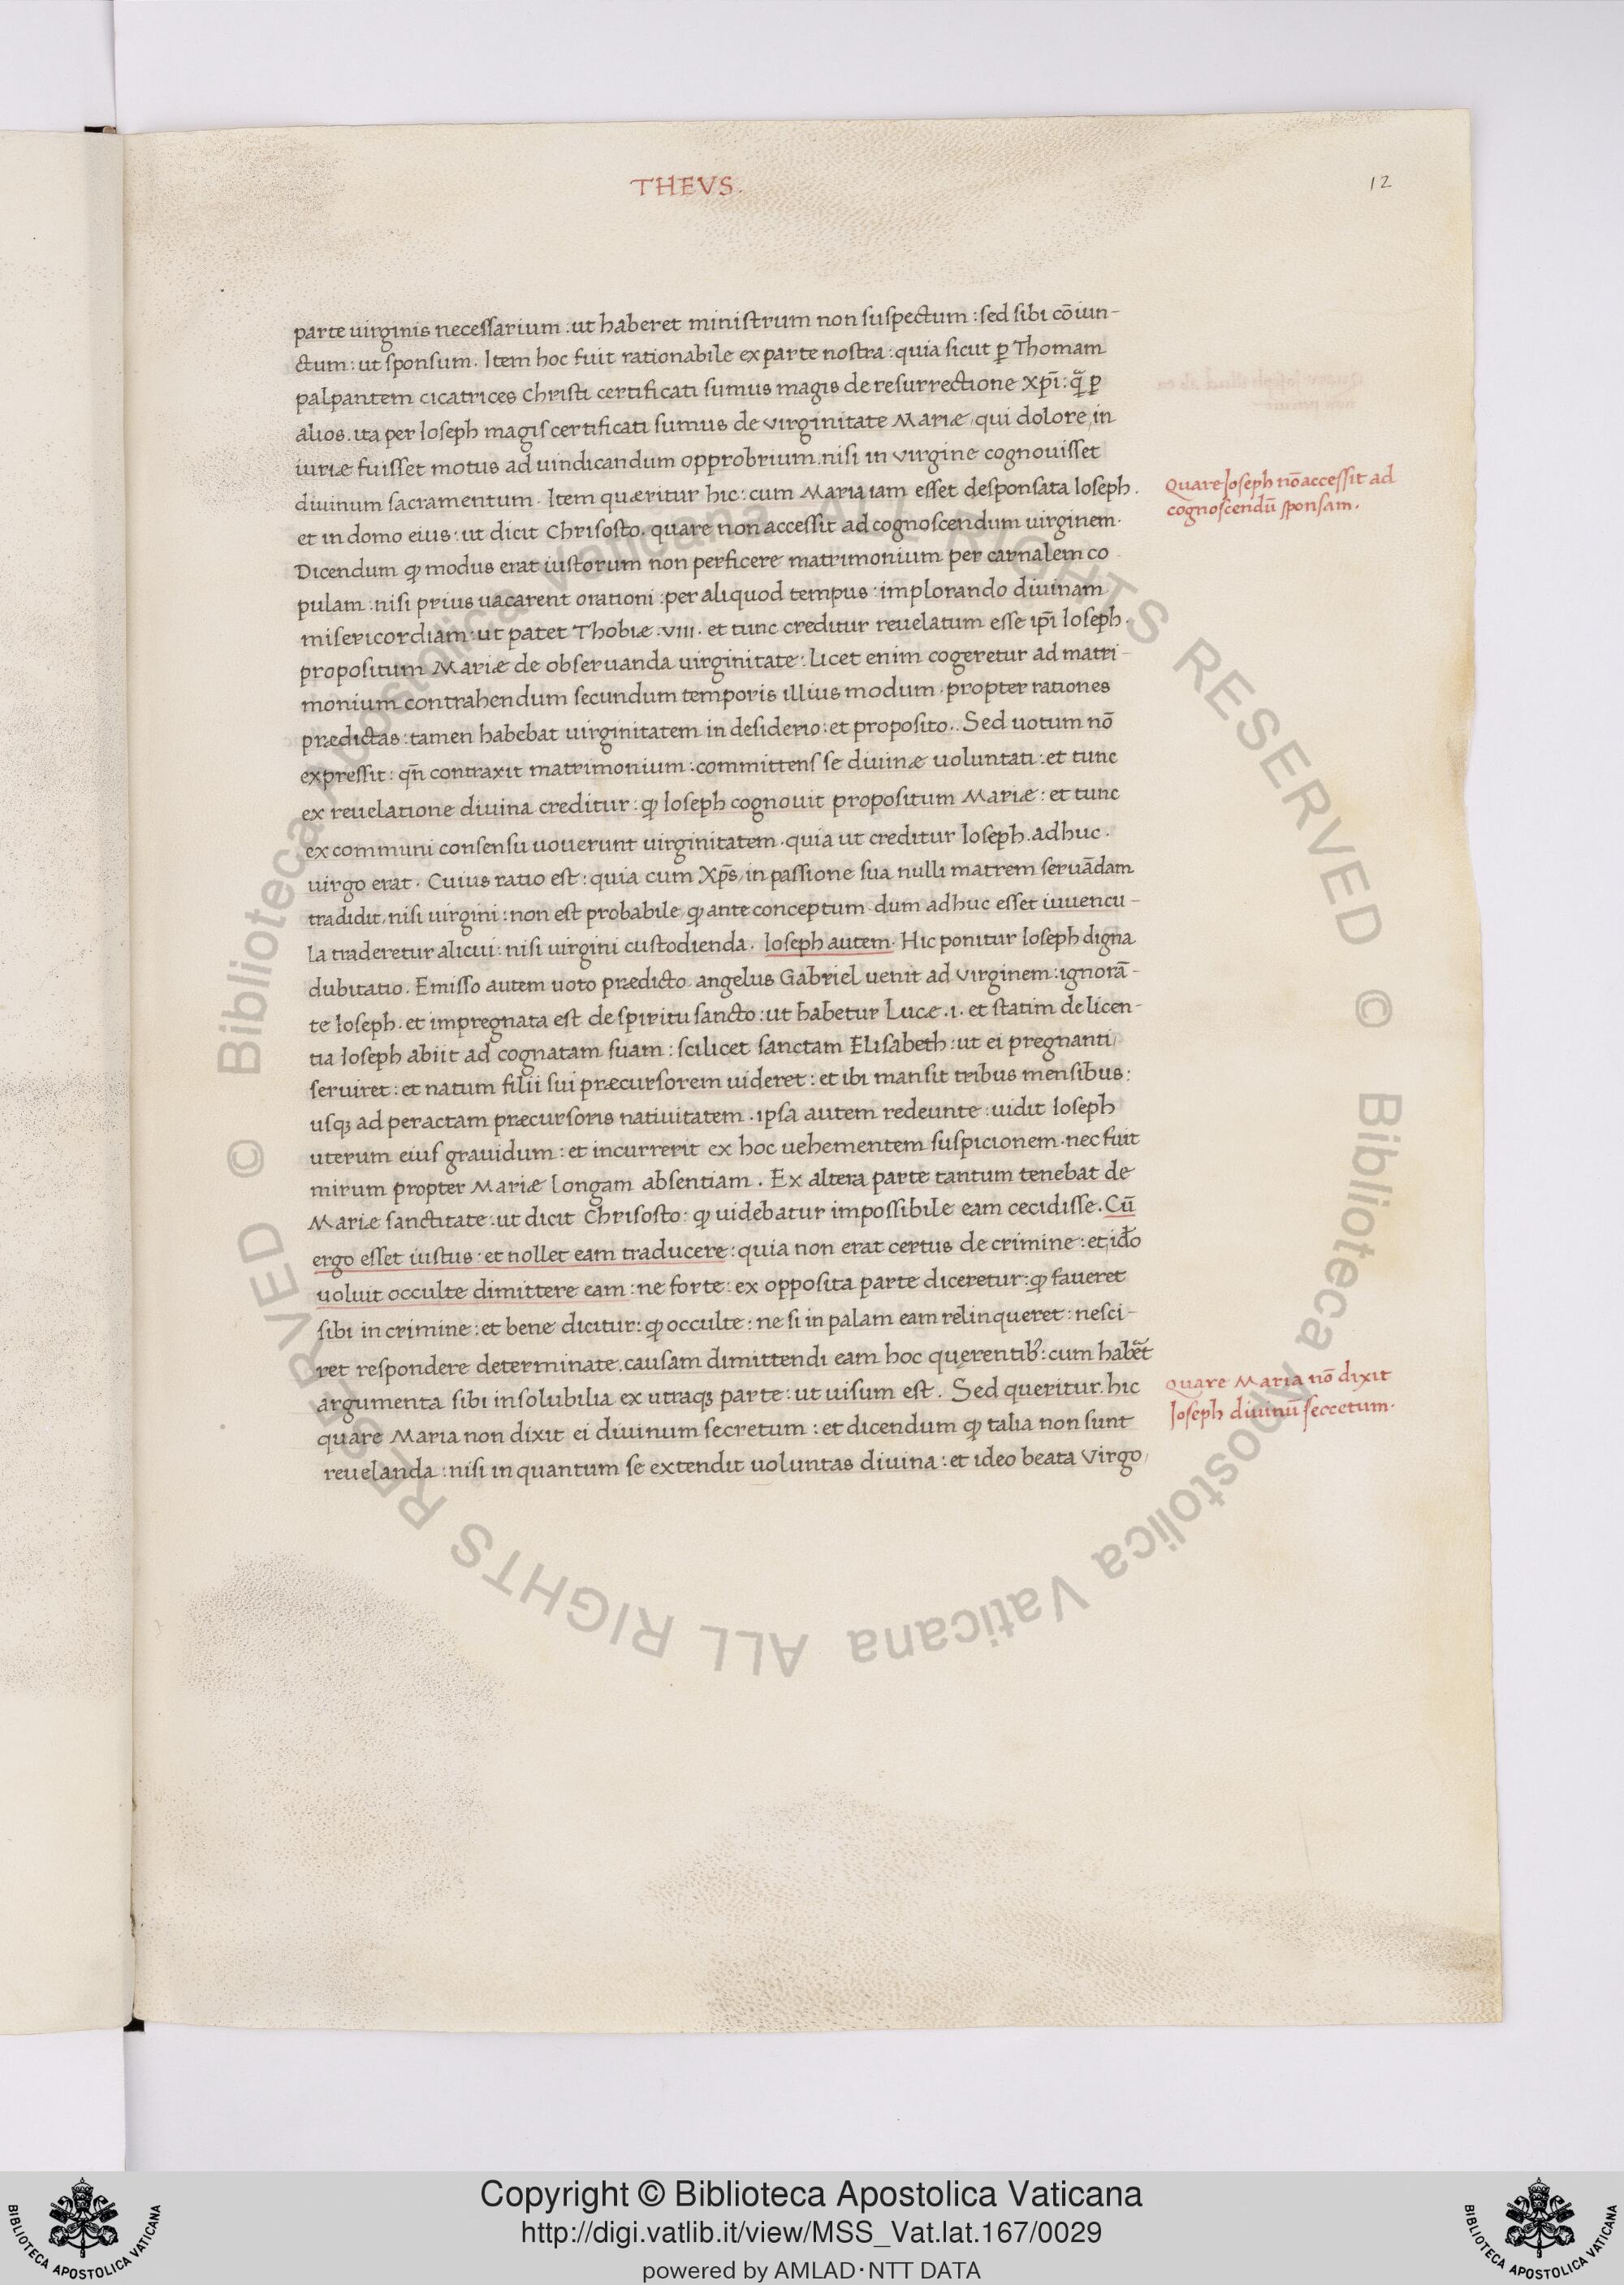 THEVS.
12
parte uirginis necessarium : ut haberet ministrum non suspectum : sed sibi cōiun-
ctum : ut sponsum. Item hoc fuit rationabile ex parte nostra : quia sicut ꝑ Thomam
palpantem cicatrices Christi certificati sumus magis de resurrectione xp̄i : q̃ ꝑ
alios. ita per Ioseph magis certificati sumus de virginitate Mariæ, qui dolore, in
iuriæ fuisset motus ad uindicandum opprobrium. nisi in virgine cognouisset
diuinum sacramentum. Item quæritur hic : cum Maria iam esset desponsata Ioseph.
Quare Ioseph nō accessit ad
cognoscendū sponsam.
et in domo eius : ut dicit Chrisosto. quare non accessit ad cognoscendum uirginem.
Dicendum ꝙ modus erat iustorum non perficere matrimonium per carnalem co
pulam : nisi prius uacarent orationi : per aliquod tempus : implorando diuinam
misericordiam : ut patet Thobiæ .VIII. et tunc creditur reuelatum esse ip̄i Ioseph.
propositum Mariæ de obseruanda uirginitate : Licet enim cogeretur ad matri-
monium contrahendum secundum temporis illius modum. propter rationes
prædictas : tamen habebat uirginitatem in desiderio : et proposito.. Sed uotum nō
expressit : qn̄ contraxit matrimonium : committens se diuinæ uoluntati : et tunc
ex reuelatione diuina creditur : ꝙ Ioseph cognouit propositum Mariæ : et tunc
ex communi consensu uouerunt uirginitatem. quia ut creditur Ioseph. adhuc.
uirgo erat. Cuius ratio est : quia cum Xp̄s, in passione sua nulli matrem seruādam
tradidit, nisi uirgini : non est probabile, ꝙ ante conceptum. dum adhuc esset iuuencu-
la traderetur alicui : nisi uirgini custodienda. Ioseph autem. Hic ponitur Ioseph digna
dubitatio. Emisso autem uoto prædicto. angelus Gabriel uenit ad virginem : ignorā-
te Ioseph. et impregnata est de spiritu sancto : ut habetur Lucæ .I. et statim de licen-
tia Ioseph abiit ad cognatam suam : scilicet sanctam Elisabeth : ut ei pregnanti,
seruiret : et natum filii sui præcursorem uideret : et ibi mansit tribus mensibus :
usqȝ ad peractam præcursoris natiuitatem. ipsa autem redeunte : uidit Ioseph
uterum eius grauidum : et incurrerit ex hoc uehementem suspicionem. nec fuit
mirum propter Mariæ longam absentiam. Ex altera parte tantum tenebat de
Mariæ sanctitate : ut dicit Chrisosto : ꝙ uidebatur impossibile eam cecidisse. Cū
ergo esset iustus : et nollet eam traducere : quia non erat certus de crimine : et, iđo
uoluit occulte dimittere eam : ne forte : ex opposita parte diceretur : ꝙ faueret
sibi in crimine : et bene dicitur : ꝙ occulte : ne si in palam eam relinqueret : nesci-
ret respondere determinate. causam dimittendi eam hoc quęrentibꝰ : cum habēt
argumenta sibi insolubilia ex utraqȝ parte : ut uisum est. Sed queritur. hic
quare Maria nō dixit
Ioseph diuinū seccetum.
quare Maria non dixit ei diuinum secretum : et dicendum ꝙ talia non sunt
reuelanda : nisi in quantum se extendit uoluntas diuina : et ideo beata Virgo,
© Biblioteca Apostolica Vaticana ALL RIGHTS RESERVED © Biblioteca Apostolica Vaticana ALL RIGHTS RESERVED
Copyright © Biblioteca Apostolica Vaticana
http://digi.vatlib.it/view/MSS_Vat.lat.167/0029
powered by AMLAD·NTT DATA
BIBLIOTECA APOSTOLICA VATICANA
BIBLIOTECA APOSTOLICA VATICANA